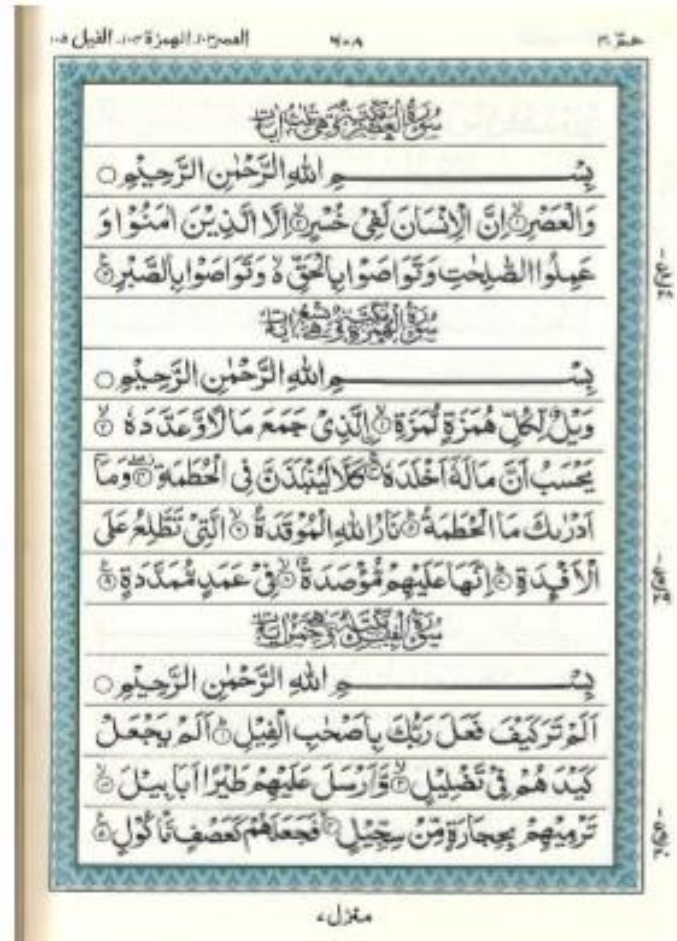 العصر١٠٣. الهمزة١٠٤. الفيل ١٠٥
٦٠٨
عمّ ٣٠
سُوْرَةُ الْعَصْرِ مَكِّيَّةٌ وَّهِيَ ثَلٰثُ اٰيَاتٍ
بِسْــــــــــمِ اللهِ الرَّحْمٰنِ الرَّحِيْمِ ○
وَالْعَصْرِ ۙ﴿١﴾ اِنَّ الْاِنْسَانَ لَفِيْ خُسْرٍ ۙ﴿٢﴾ اِلَّا الَّذِيْنَ اٰمَنُوْا وَ
عَمِلُوا الصّٰلِحٰتِ وَتَوَاصَوْا بِالْحَقِّ ۙ۬ وَتَوَاصَوْا بِالصَّبْرِ ﴿٣﴾
سُوْرَةُ الْهُمَزَةِ مَكِّيَّةٌ وَّهِيَ تِسْعُ اٰيَاتٍ
بِسْــــــــــمِ اللهِ الرَّحْمٰنِ الرَّحِيْمِ ○
وَيْلٌ لِّكُلِّ هُمَزَةٍ لُّمَزَةِ ۙ﴿١﴾ اِلَّذِيْ جَمَعَ مَالًا وَّعَدَّدَهٗ ۙ﴿٢﴾
يَحْسَبُ اَنَّ مَالَهٗٓ اَخْلَدَهٗ ۚ﴿٣﴾ كَلَّا لَيُنْۢبَذَنَّ فِي الْحُطَمَةِ ﴿٤﴾ وَمَآ
اَدْرٰىكَ مَا الْحُطَمَةُ ؕ﴿٥﴾ نَارُ اللهِ الْمُوْقَدَةُ ۙ﴿٦﴾ الَّتِيْ تَطَّلِعُ عَلَى
الْاَفْـِٕدَةِ ؕ﴿٧﴾ اِنَّهَا عَلَيْهِمْ مُّؤْصَدَةٌ ۙ﴿٨﴾ فِيْ عَمَدٍ مُّمَدَّدَةٍ ﴿٩﴾
سُوْرَةُ الْفِيْلِ مَكِّيَّةٌ وَّهِيَ خَمْسُ اٰيَاتٍ
بِسْــــــــــمِ اللهِ الرَّحْمٰنِ الرَّحِيْمِ ○
اَلَمْ تَرَ كَيْفَ فَعَلَ رَبُّكَ بِاَصْحٰبِ الْفِيْلِ ؕ﴿١﴾ اَلَمْ يَجْعَلْ
كَيْدَهُمْ فِيْ تَضْلِيْلٍ ۙ﴿٢﴾ وَّاَرْسَلَ عَلَيْهِمْ طَيْرًا اَبَابِيْلَ ۙ﴿٣﴾
تَرْمِيْهِمْ بِحِجَارَةٍ مِّنْ سِجِّيْلٍ ۙ﴿٤﴾ فَجَعَلَهُمْ كَعَصْفٍ مَّاْكُوْلٍ ﴿٥﴾
منزل ٧